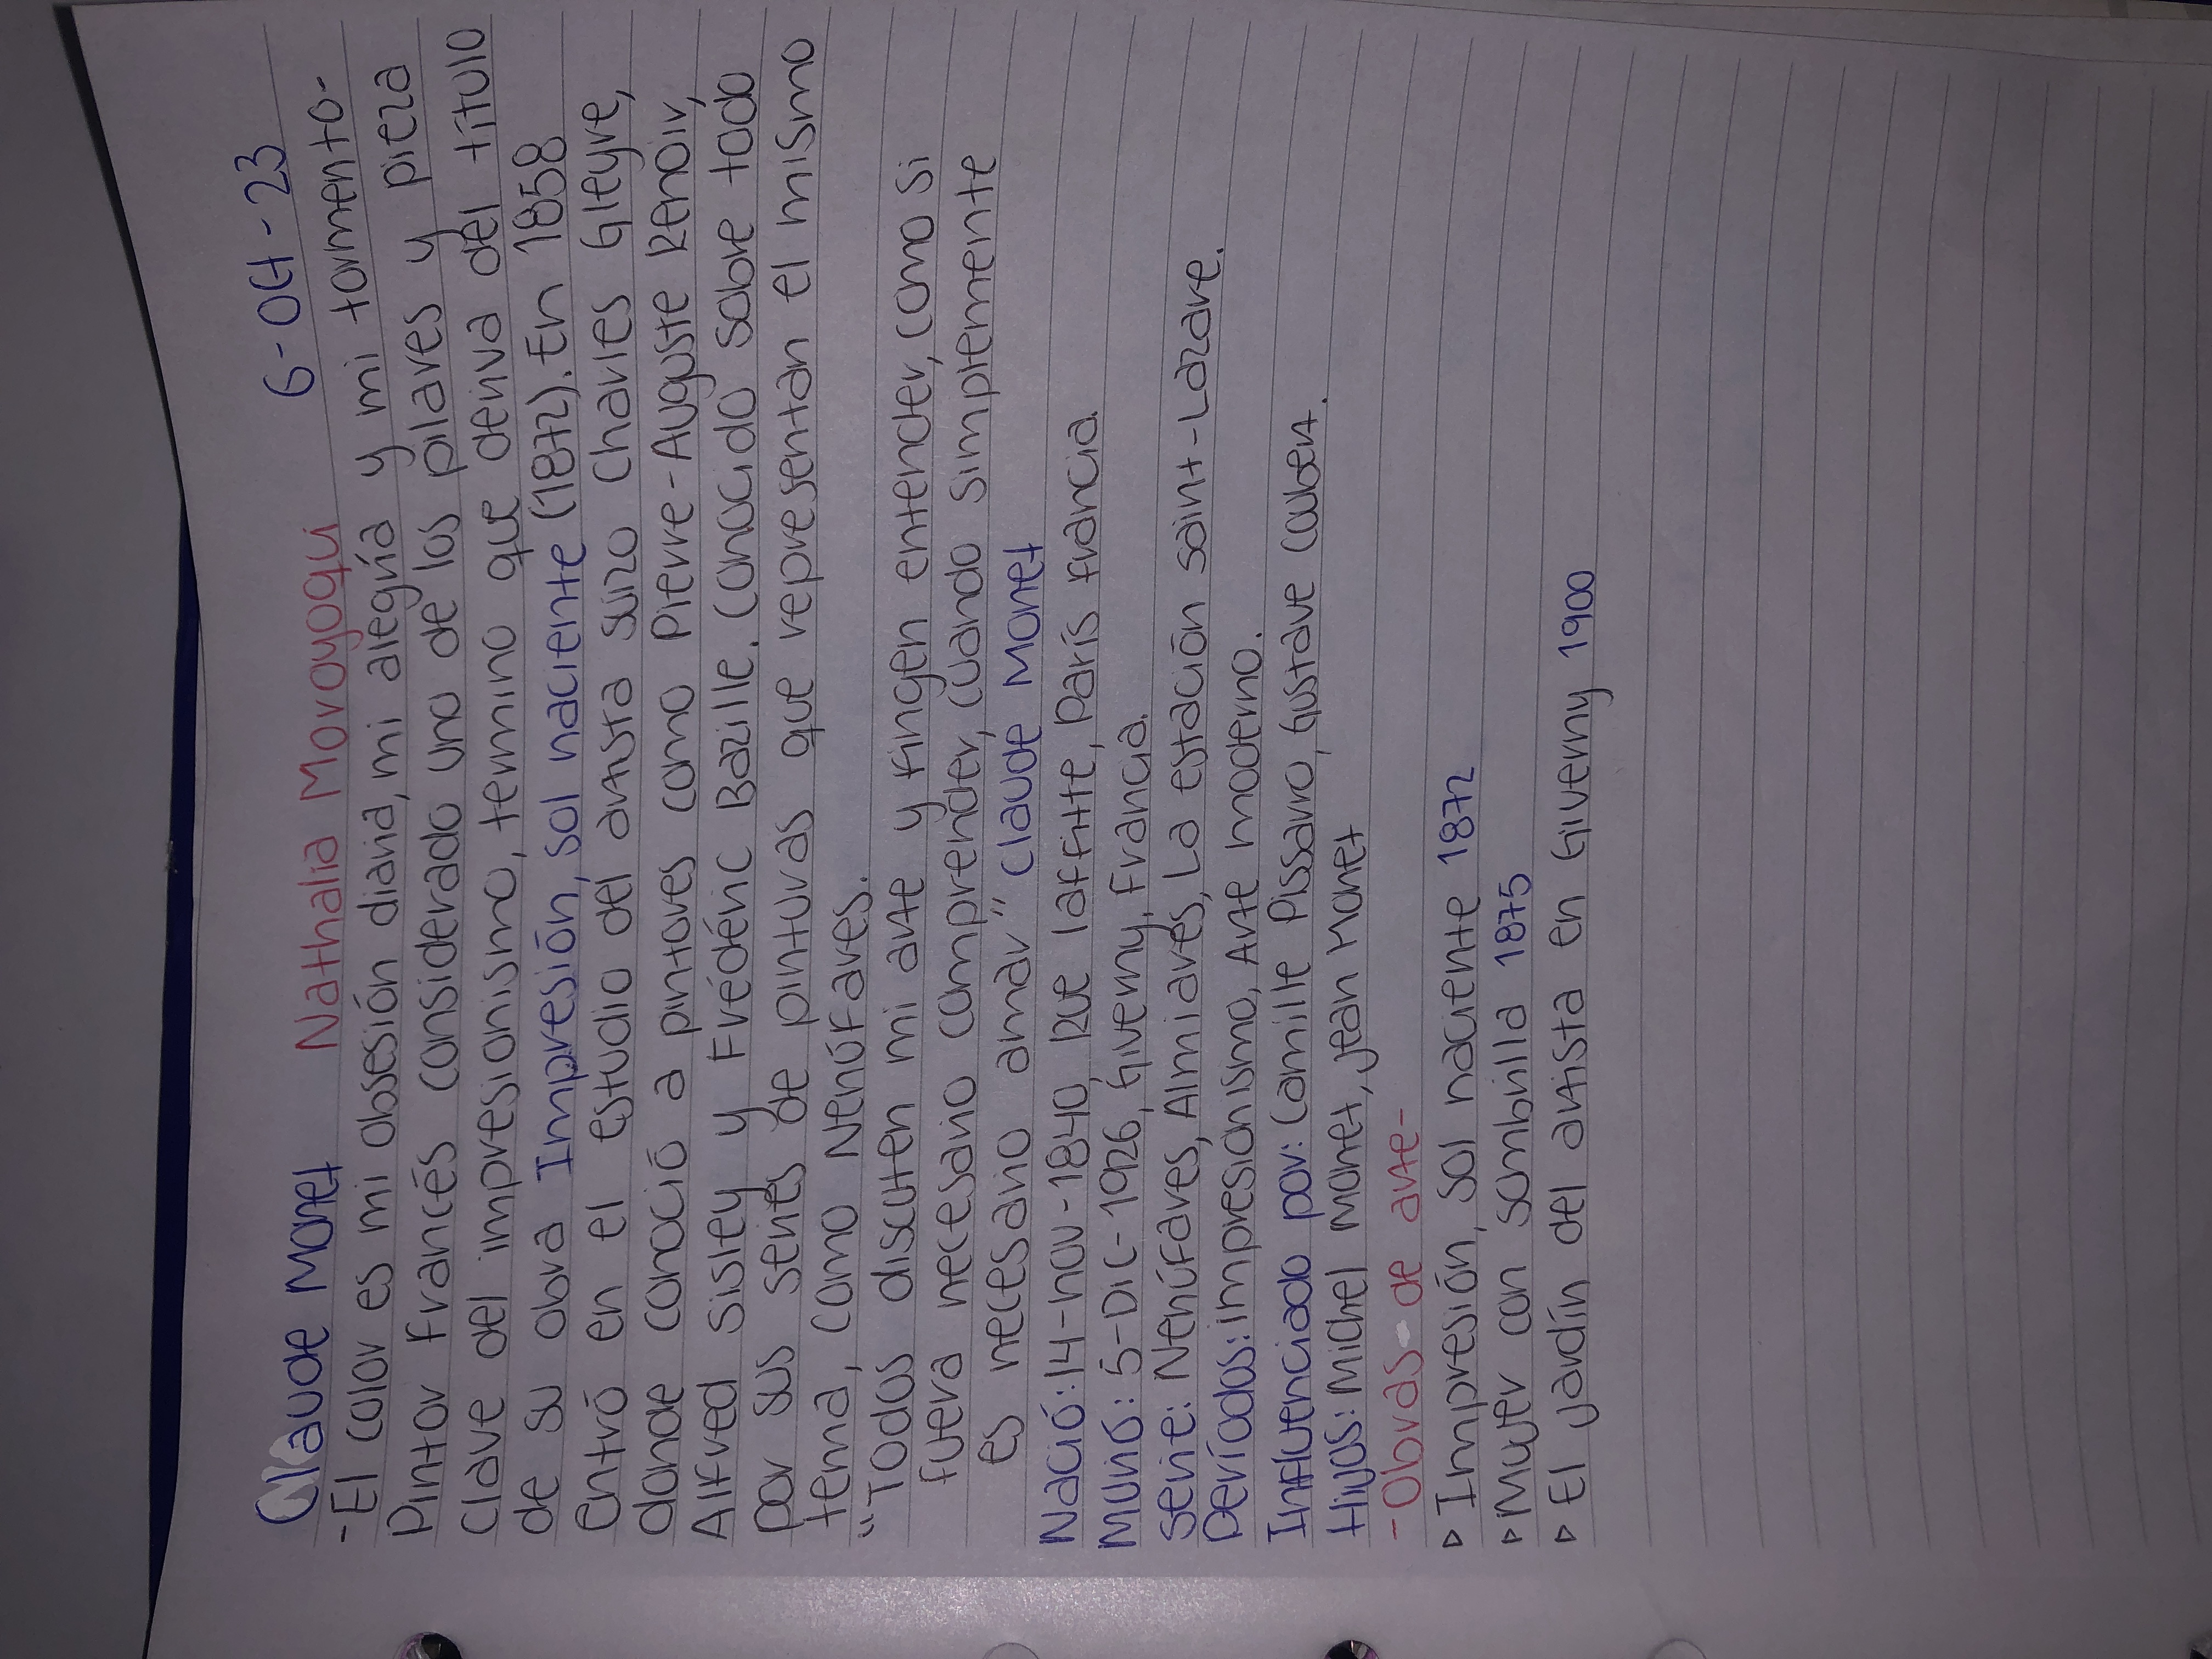 Claude Monet Nathalia Moroyoqui 6-Oct-23
-El color es mi obsesión diaria, mi alegría y mi tormento-
Pintor Francés considerado uno de los pilares y pieza
clave del impresionismo, termino que deriva del título
de su obra Impresión, sol naciente (1872). En 1858
entró en el estudio del artista suizo Charles Gleyre,
donde conoció a pintores como Pierre-Auguste Renoir,
Alfred Sisley y Frédéric Bazille. Conocido sobre todo
por sus series de pinturas que representan el mismo
tema, como Nenúfares.
"Todos discuten mi arte y fingen entender, como si
fuera necesario comprender, cuando simplemente
es necesario amar" Claude Monet
Nació: 14-nov-1840, Rue laffitte, París francia
Murió: 5-Dic-1926, Giverny, Francia.
Serie: Nenúfares, Almiares, La estación saint-Lazare.
períodos: impresionismo, Arte moderno.
Influenciado por: Camille Pissarro, Gustave Coubert.
Hijos: Michel Monet, Jean Monet
-Obras de arte-
▹ Impresión, sol naciente 1872
▹ Mujer con sombrilla 1875
▹ El jardín del artista en Giverny 1900